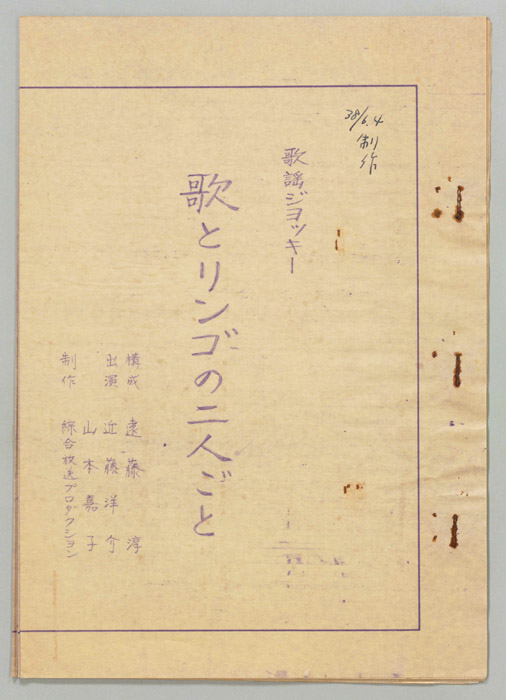 38/6.4
制作
歌謡ジョッキー
歌とリンゴの二人ごと
構成 遠藤淳
出演 近藤洋介
山本嘉子
制作 綜合放送プロダクション